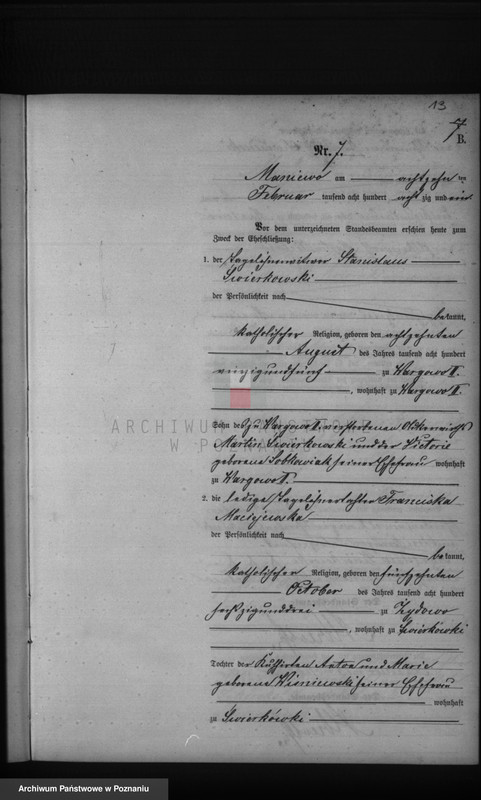 13
7
B.
Nr. 7.
Maniewo am achtzehnten
Februar tausend acht hundert acht zig und eins
Vor dem unterzeichneten Standesbeamten erschien heute zum
Zweck der Eheschließung:
1. der Tagelöhnerwitwer Stanislaus
Swierkowski
der Persönlichkeit nach
bekannt,
katholischer Religion, geboren den achtzehnten
August des Jahres tausend acht hundert
vierzigundfünf zu Wargowo II.
, wohnhaft zu Wargowo II.
ARCHIWUM
W POZNANIU
Sohn des zu Wargowo II. verstorbenen Ackerwirths
Martin Swierkowski und der Victorie
geborene Sobkowiak seiner Ehefrau wohnhaft
zu Wargowo I.
2. die ledige Tagelöhnertochter Franciska
Maciejewska
der Persönlichkeit nach
bekannt,
katholischer Religion, geboren den fünfzehnten
October des Jahres tausend acht hundert
sechzigunddrei zu Zydowo
, wohnhaft zu Swierkówki
Tochter der Kuhhirten Anton und Marie
geborene Wisniewski seiner Ehefrau
wohnhaft
zu Swierkówki
Archiwum Państwowe w Poznaniu